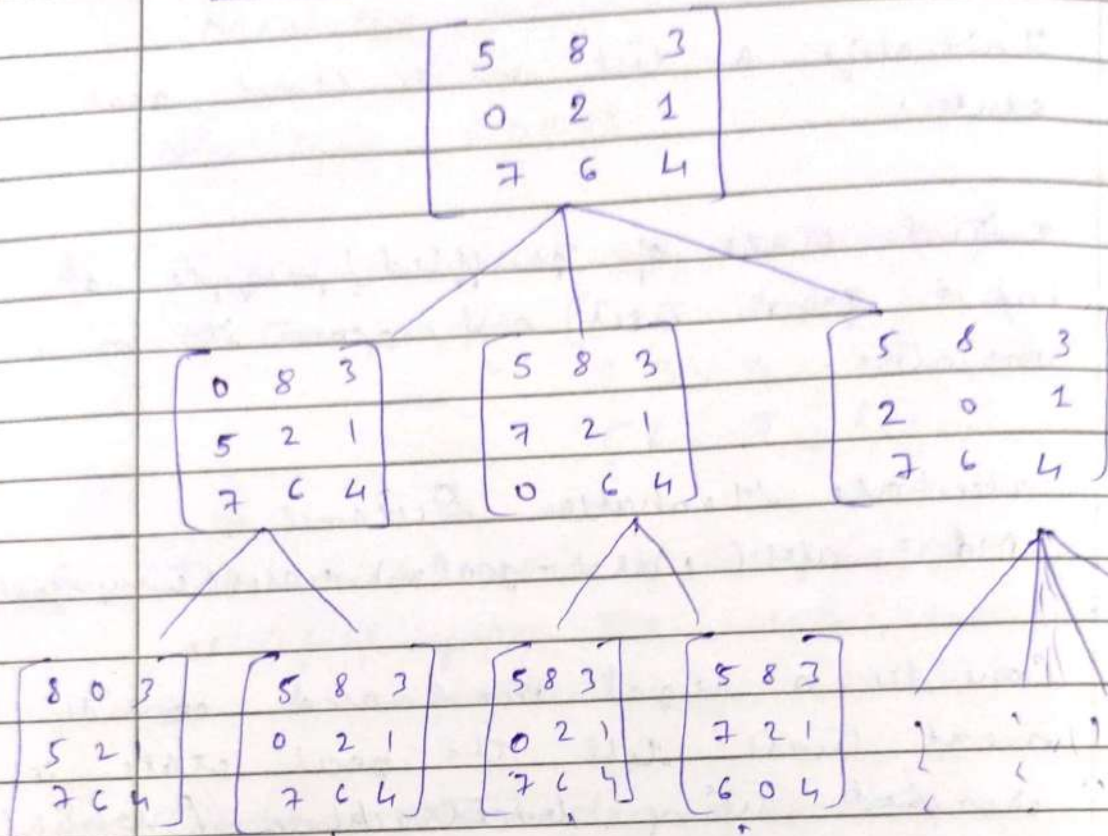 5 8 3
0 2 1
7 6 4
0 8 3
5 2 1
7 6 4
5 8 3
7 2 1
0 6 4
5 8 3
2 0 1
7 6 4
8 0 3
5 2 1
7 6 4
5 8 3
0 2 1
7 6 4
5 8 3
0 2 1
7 6 4
5 8 3
7 2 1
6 0 4